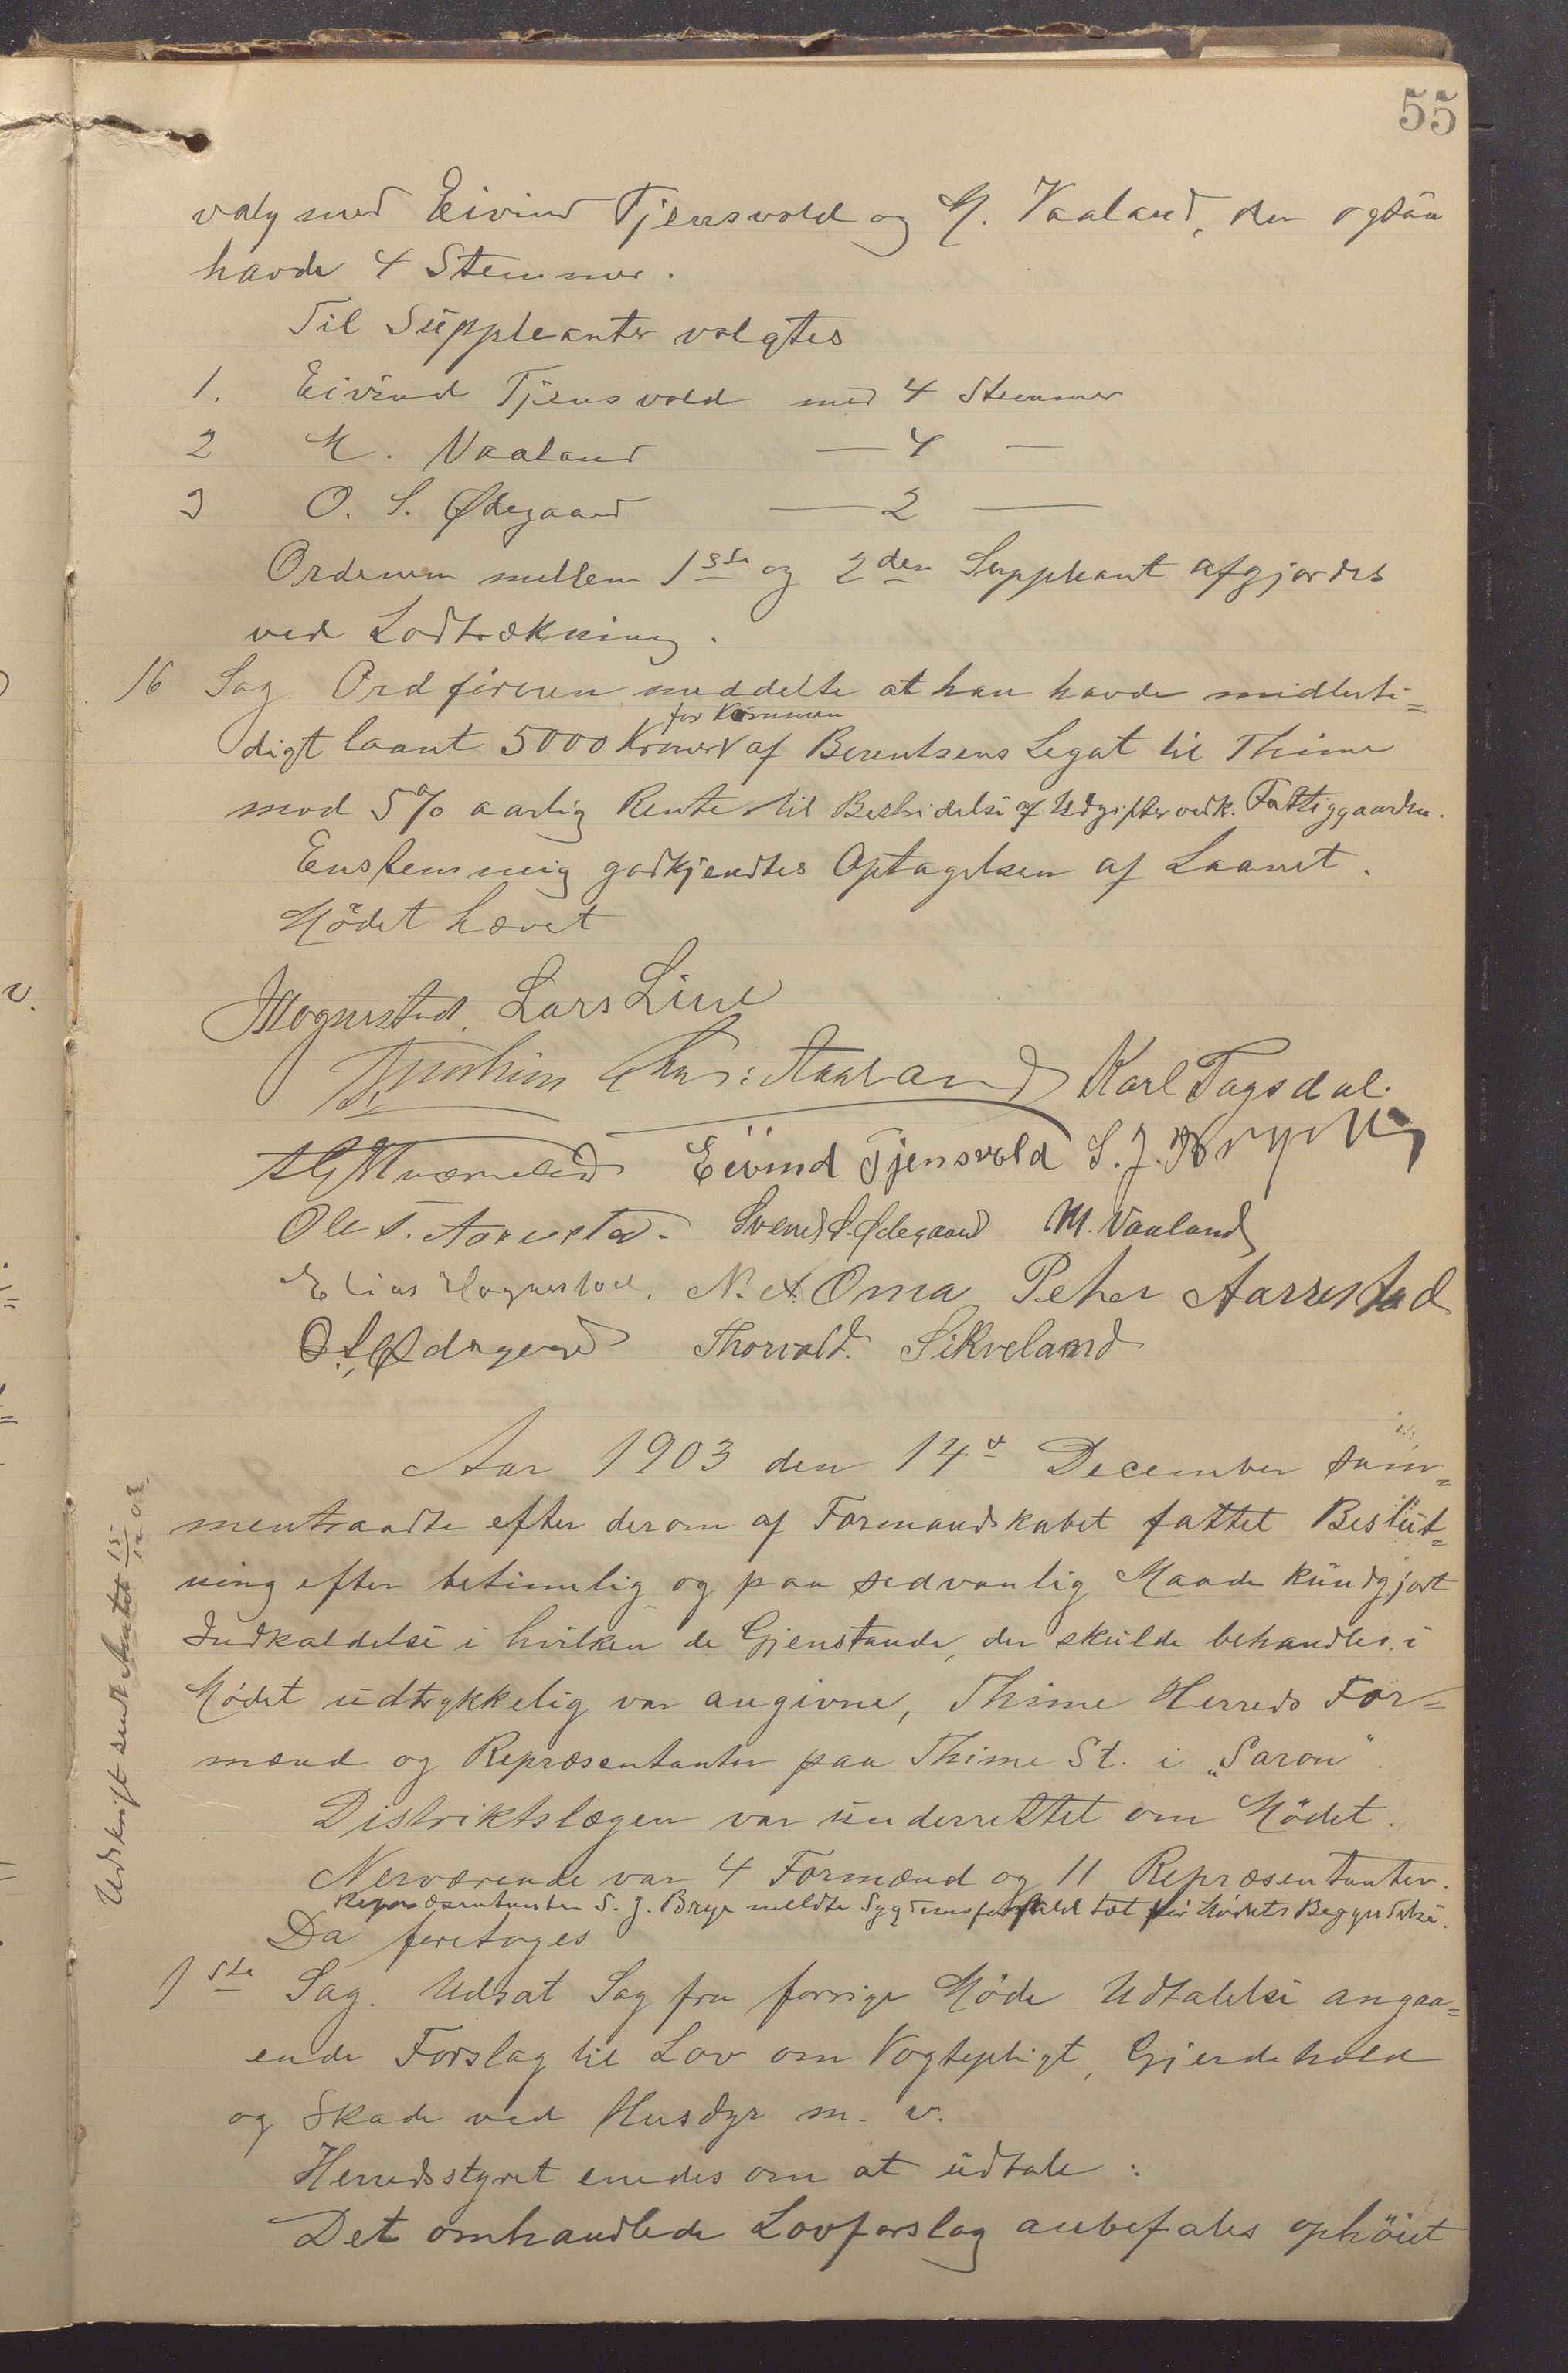 55
valg med Eivind Tjensvold og M. Vaaland, der ogsaa
havde 4 Stemmer.
Til Suppleanter valgtes
1. Eivind Tjensvold med 4 Stemmer
2 M. Vaaland — 4 —
3 O. S. Ødegaard — 2 —
Ordenen mellem 1ste og 2den Suppleant afgjordes
ved Lodtrækning.
16 Sag. Ordføreren meddelte at han havde midlerti=
for Kommunen
digt laant 5000 Kroner af Berentsens Legat til Thime
mod 5% aarlig Rente til Bestridelse af Udgifter vedk. Fattiggaarden.
Enstemmig godkjendtes Optagelsen af Laanet.
Mödet hævet
Lars Line
Karl Tagsdal.
Eivind Tjensvold S. J. Brye
Ole T. Aarrestad. Svend S. Ødegaard M. Vaaland
Elias Hognestad. N. A. Oma Peter Aarrestad
O. S. Ødegaard Thorvald Sikveland
Aar 1903 den 14de December sam=
mentraadte efter derom af Formandskabet fattet Beslut=
ning efter betimelig og paa sedvanlig Maade kundgjort
Indkaldelse i hvilken de Gjenstande, der skulde behandles i
Mödet udtrykkelig var angivne, Thime Herreds For=
mænd og Repræsentanter paa Thime St. i „Saron".
Distriktslægen var underrettet om Mödet.
Nerværende var 4 Formænd og 11 Repræsentanter.
Repræsentanten S. J. Brye meldte Sygdomsforfald tæt för Mödets Begyndelse.
Da foretoges
1ste Sag. Udsat Sag fra forrige Möde Udtalelse angaa=
ende Forslag til Lov om Vogtepligt, Gjerdehold
og Skade ved Husdyr m. v.
Herredsstyret enedes om at udtale:
Det omhandlede Lovforslag anbefales ophöiet
Udskrift sendt Amtet 15/12 03.